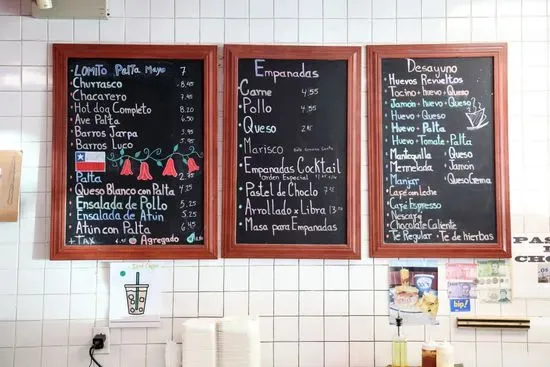 LOMITO Palta Mayo 7
Churrasco 8.95
Chacarero
Hot dog Completo 8.20
Ave Palta 6.50
Barros Jarpa
Barros Luco
Palta
Queso Blanco con Palta 4.25
Ensalada de Pollo 5.25
Ensalada de Atún 5.25
Atún con Palta 6.45
+TAX Agregado
Empanadas
Carne 4.55
Pollo 4.55
Queso 2.95
Marisco Solo Semana Santa
Empanadas Cocktail
Orden Especial
Pastel de Choclo
Arrollado x Libra 13.00
Masa para Empanadas
Desayuno
Huevos Revueltos
Tocino + huevo + Queso
Jamón + huevo + Queso
Huevo + Queso
Huevo + Palta
Huevo + Tomate + Palta
Mantequilla Queso
Mermelada Jamon
Manjar Queso Crema
Café con Leche
Café Espresso
Nescafé
Chocolate Caliente
Te Regular + Te de hierbas
bip!